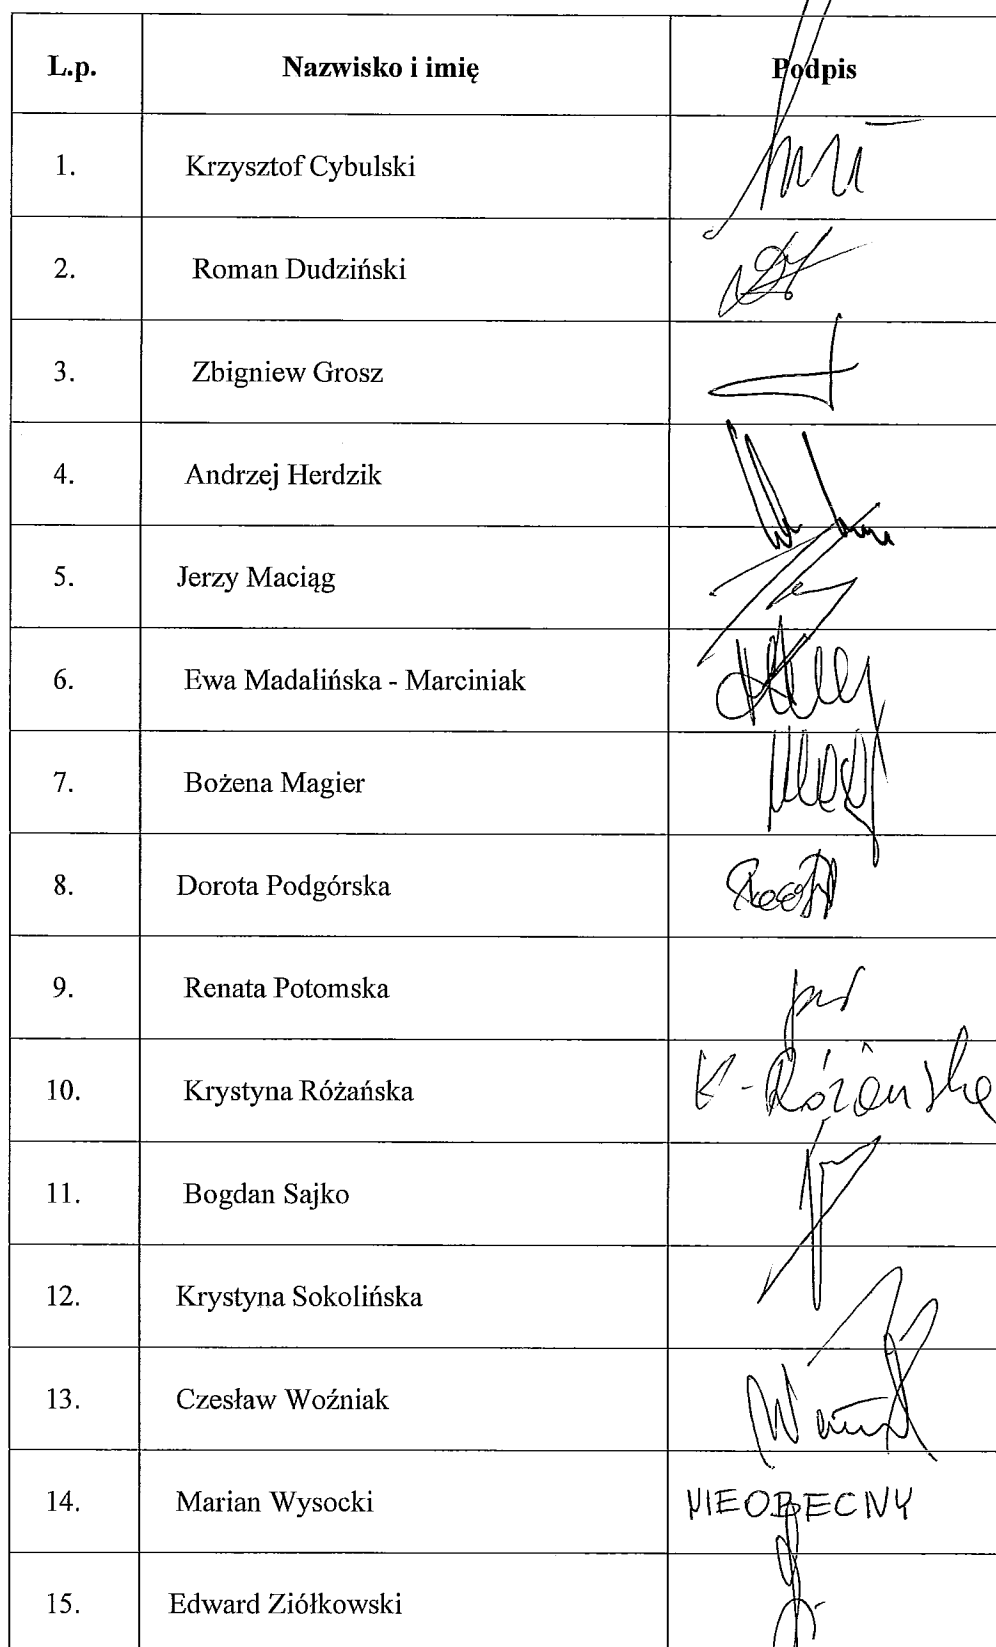 L.p. Nazwisko i imię Podpis
1. Krzysztof Cybulski
2. Roman Dudziński
3. Zbigniew Grosz
4. Andrzej Herdzik
5. Jerzy Maciąg
6. Ewa Madalińska - Marciniak
7. Bożena Magier
8. Dorota Podgórska
9. Renata Potomska
10. Krystyna Różańska K-Różańska
11. Bogdan Sajko
12. Krystyna Sokolińska
13. Czesław Woźniak
14. Marian Wysocki NIEOBECNY
15. Edward Ziółkowski